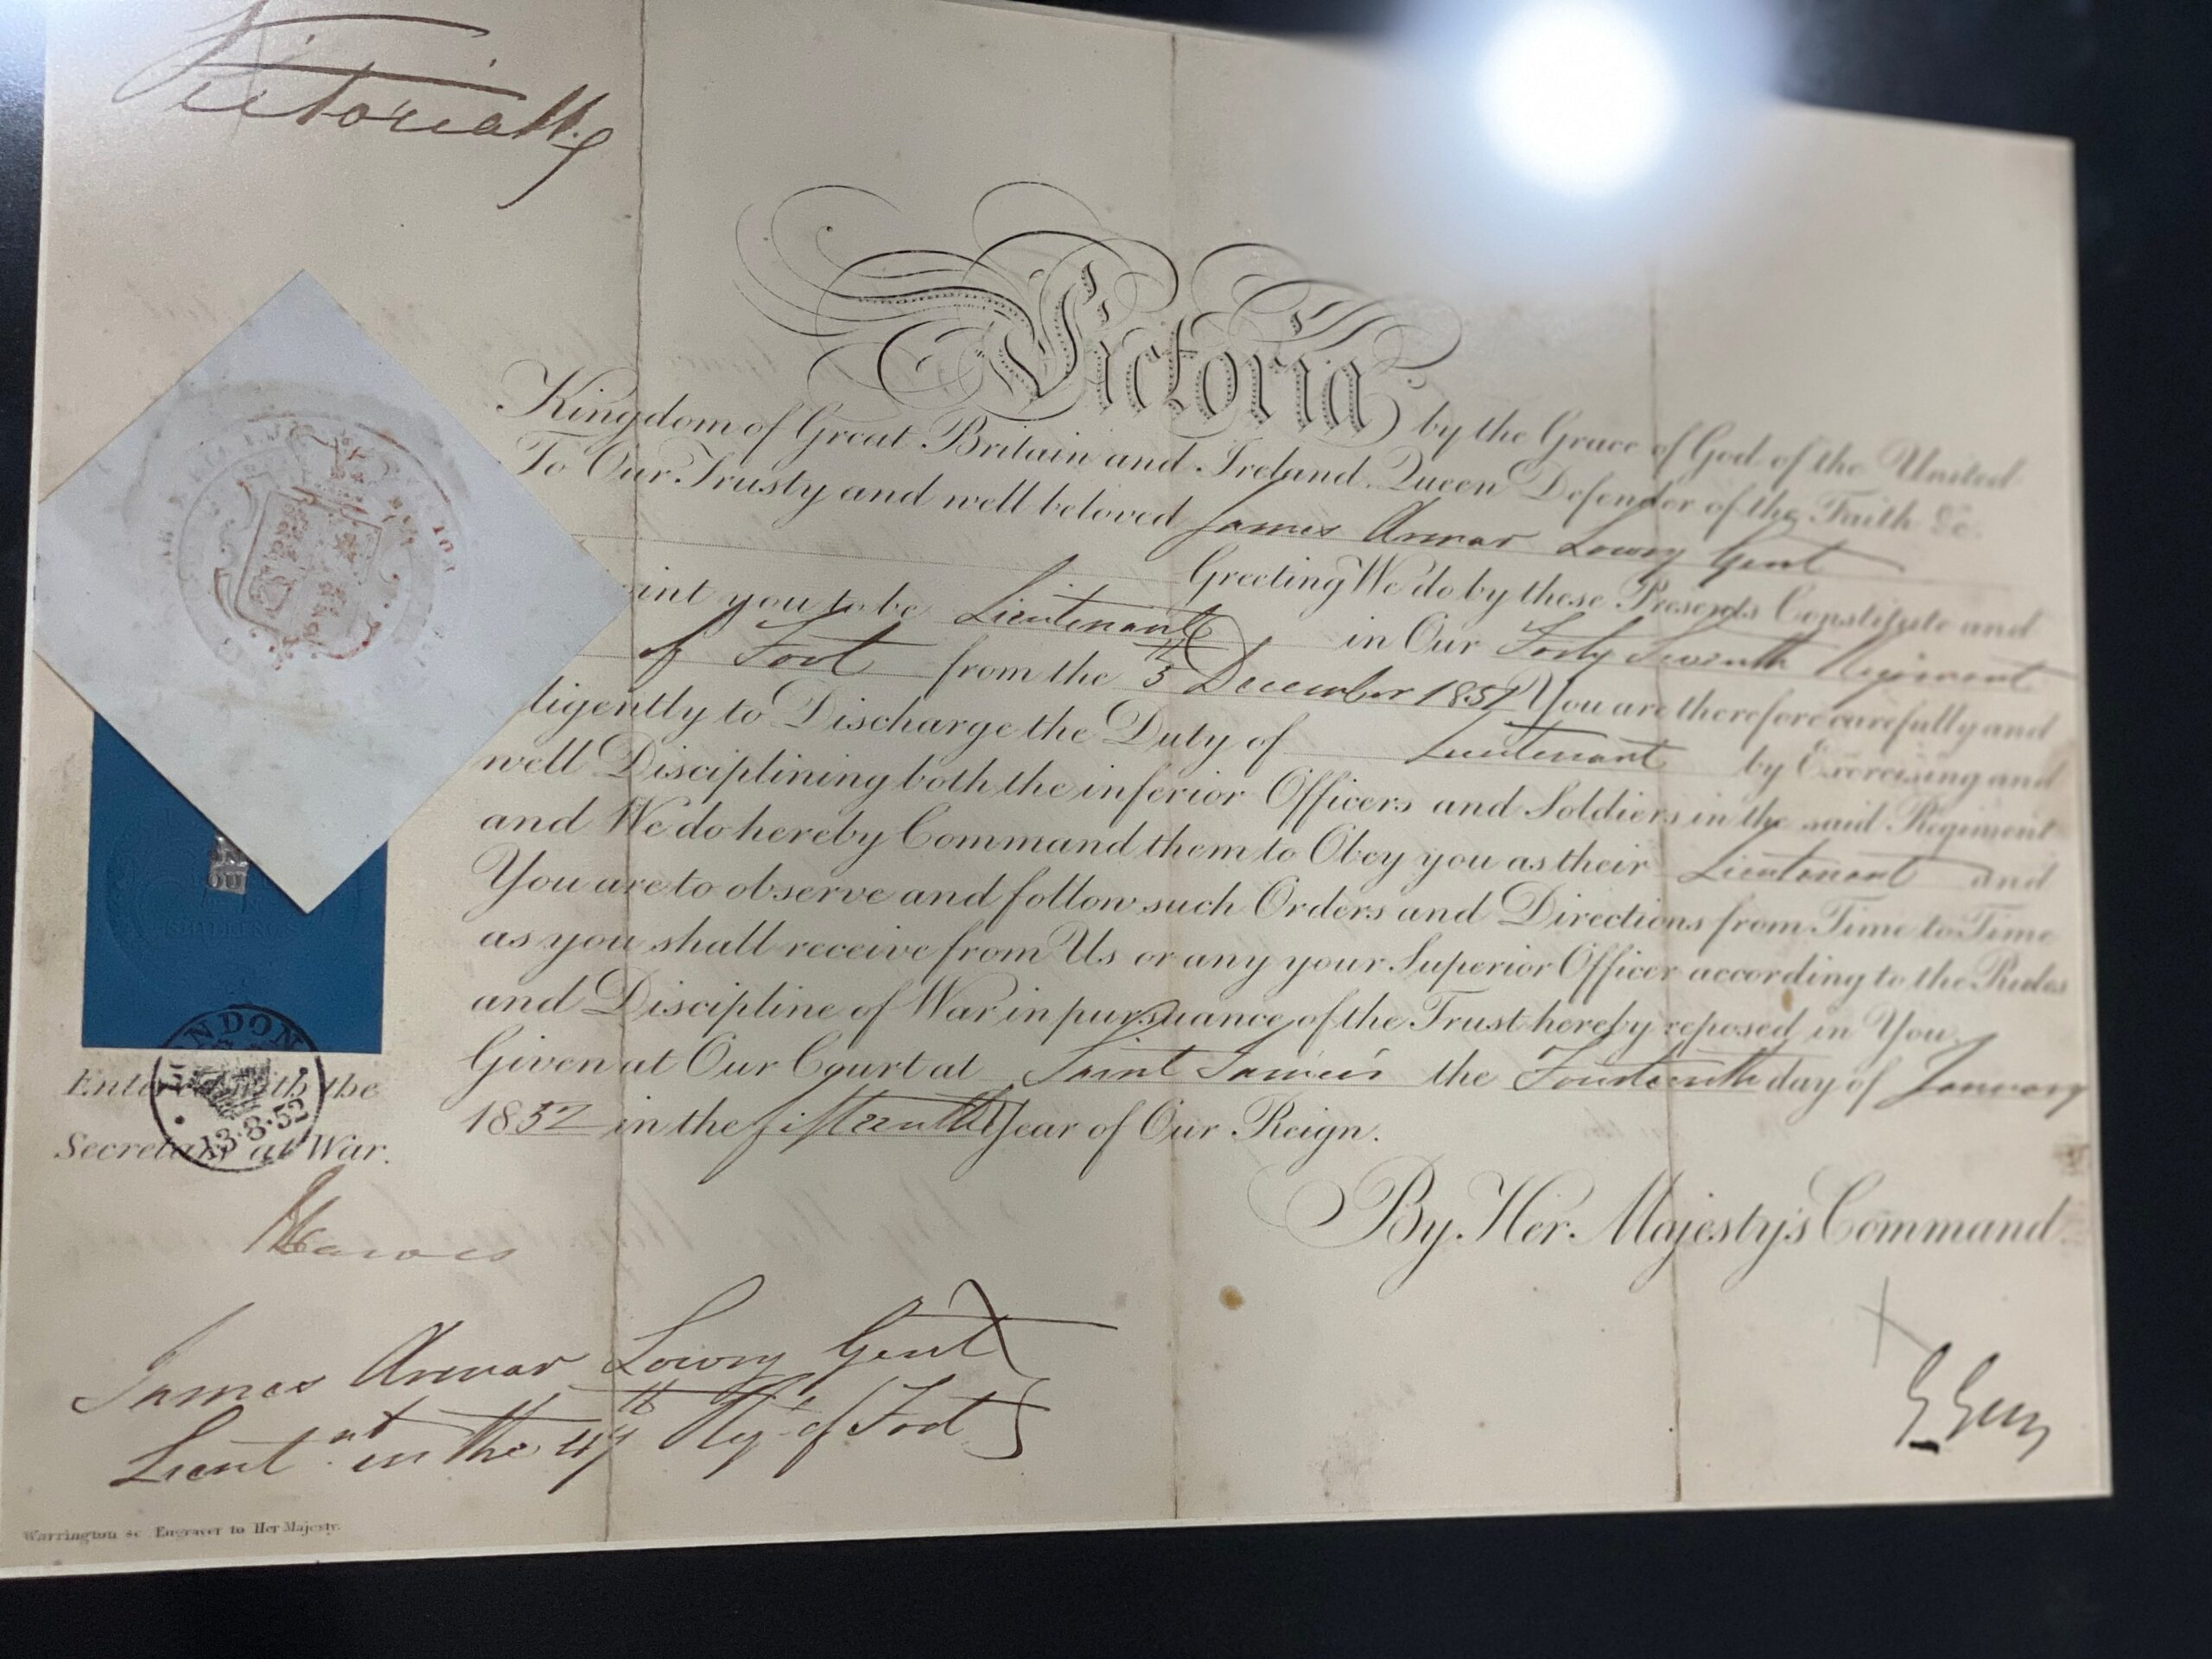 Victoria R.
Victoria by the Grace of God of the United
Kingdom of Great Britain and Ireland Queen Defender of the Faith &c.
To Our Trusty and well beloved James Armar Lowry Gent
Greeting We do by these Presents Constitute and
int you to be Lieutenant in Our Forty Seventh Regiment
of Foot from the 5th December 1851 You are therefore carefully and
ligently to Discharge the Duty of Lieutenant by Exercising and
well Disciplining both the inferior Officers and Soldiers in the said Regiment
and We do hereby Command them to Obey you as their Lieutenant and
You are to observe and follow such Orders and Directions from Time to Time
as you shall receive from Us or any your Superior Officer according to the Rules
and Discipline of War in pursuance of the Trust hereby reposed in You.
Given at Our Court at Saint James's the Fourteenth day of January
1852 in the fifteenth Year of Our Reign.
By Her Majesty's Command
G Grey
LONDON
13.8.52
Entered with the
Secretary at War.
James Armar Lowry Gent
Lieut nt in the 47th Regt of Foot
Warrington sc Engraver to Her Majesty.